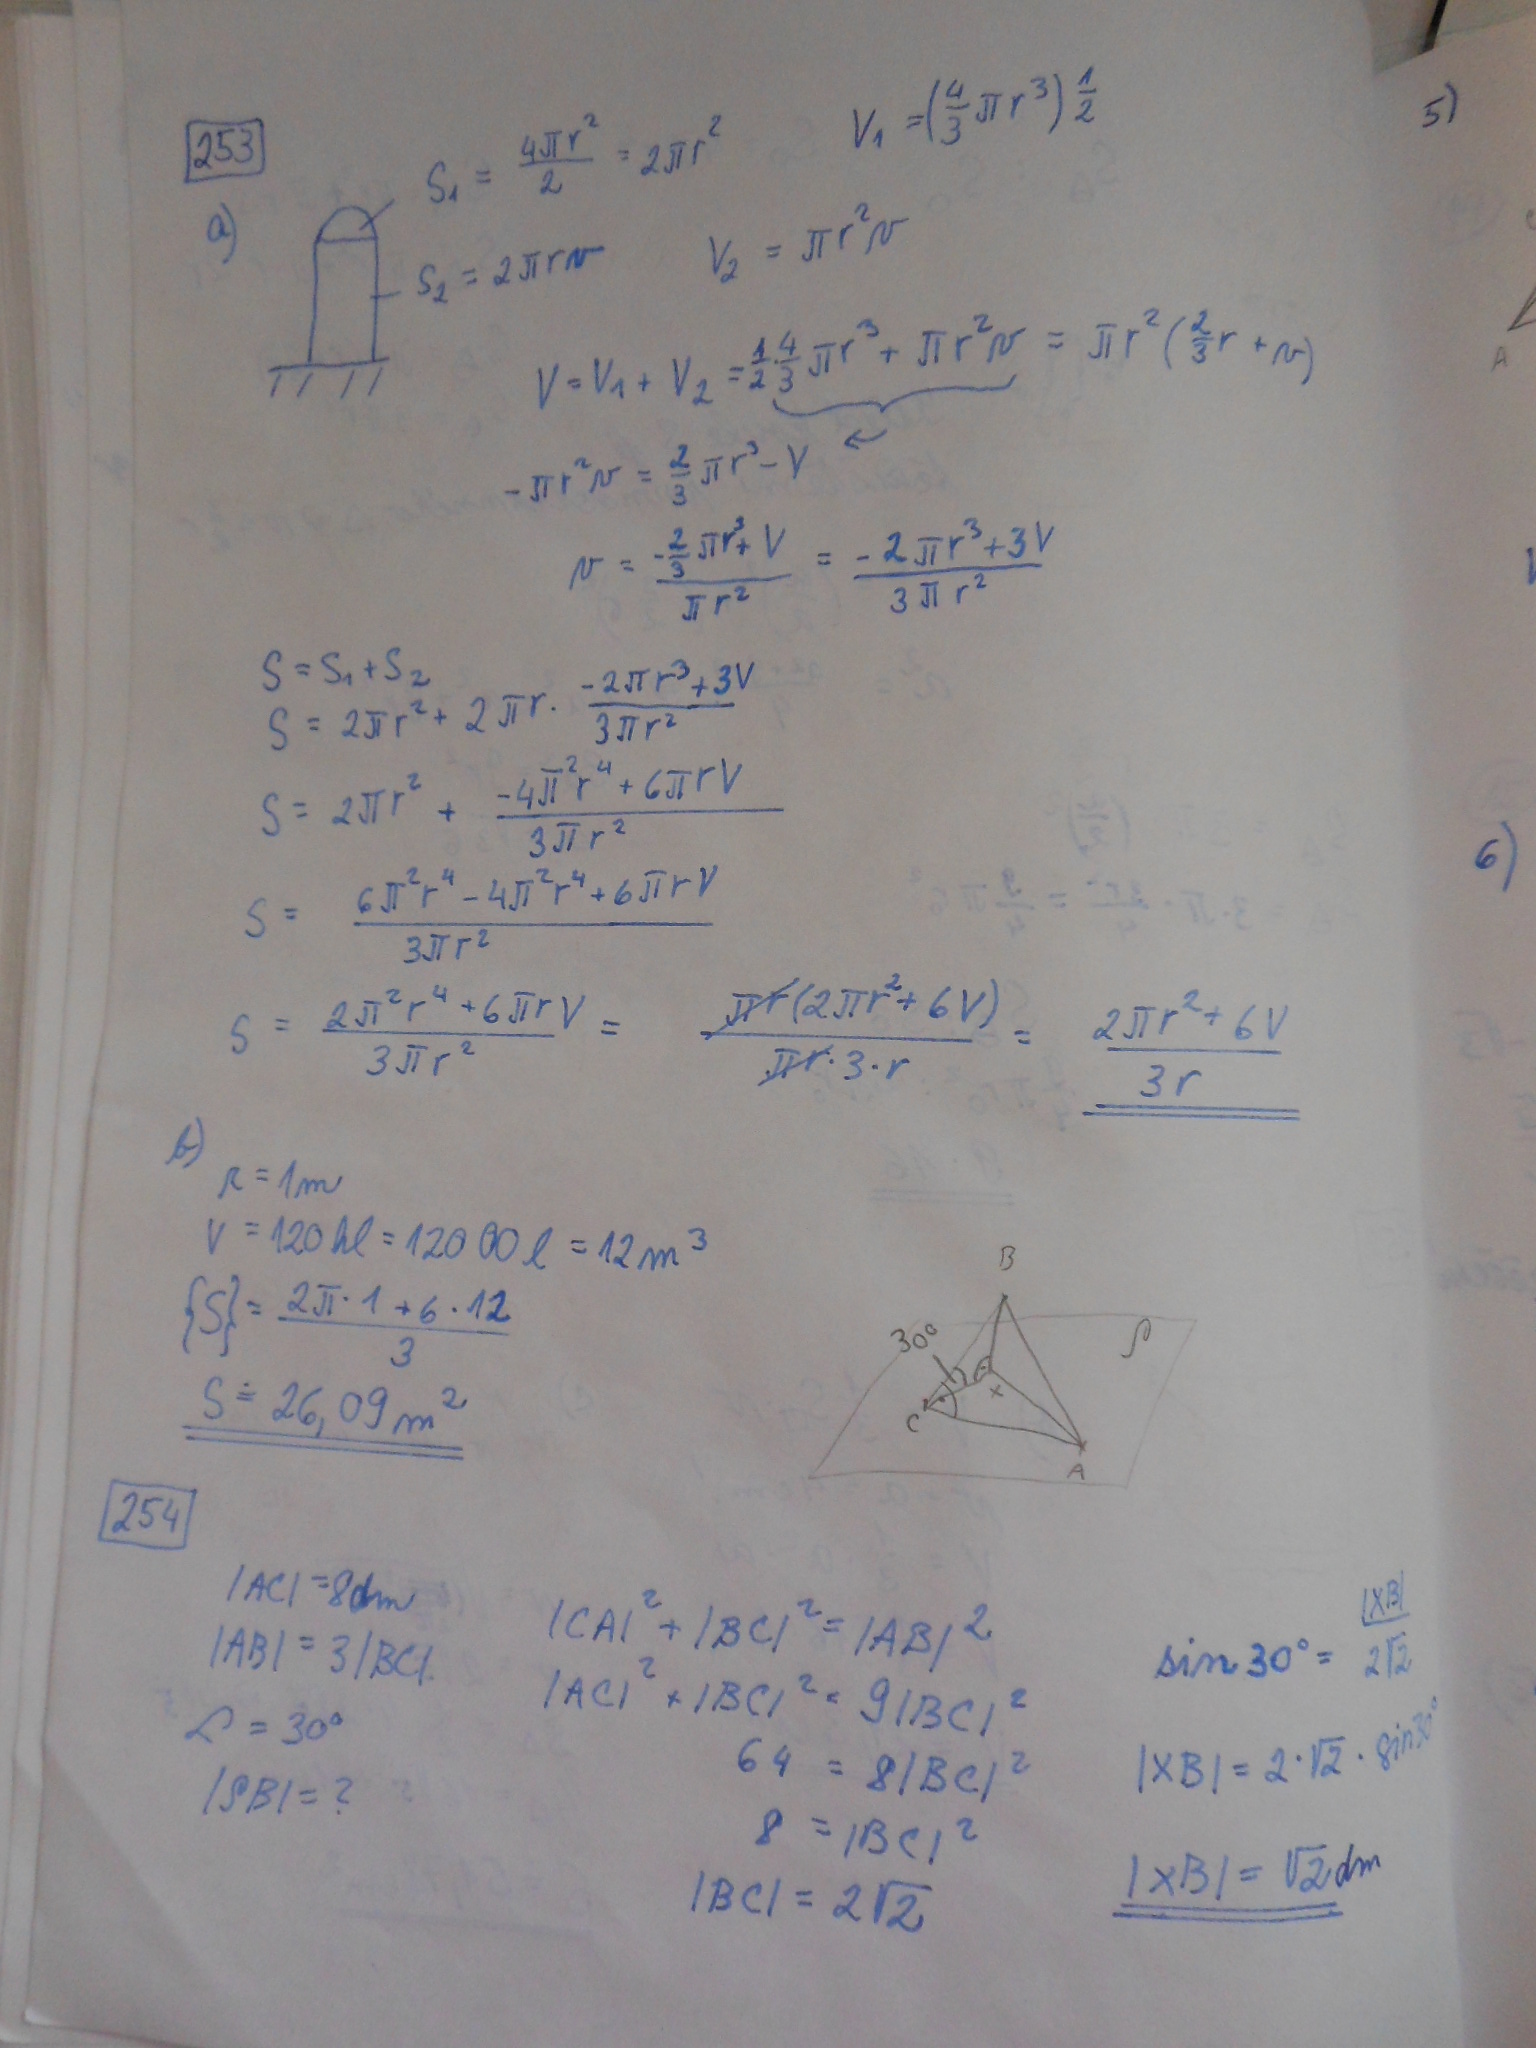 253
a)
S₁ = 4πr²/2 = 2πr²
V₁ = (4/3 πr³) 1/2
S₂ = 2πrv
V₂ = πr²v
V = V₁ + V₂ = 1/2 · 4/3 πr³ + πr²v = πr²(2/3 r + v)
-πr²v = 2/3 πr³ - V
v = (-2/3 πr³ + V)/(πr²) = (-2πr³ + 3V)/(3πr²)
S = S₁ + S₂
S = 2πr² + 2πr · (-2πr³ + 3V)/(3πr²)
S = 2πr² + (-4π²r⁴ + 6πrV)/(3πr²)
S = (6π²r⁴ - 4π²r⁴ + 6πrV)/(3πr²)
S = (2π²r⁴ + 6πrV)/(3πr²) = πr(2πr² + 6V)/(πr·3·r) = (2πr² + 6V)/(3r)
b)
r = 1m
V = 120 hl = 12000 l = 12 m³
{S} = (2π·1 + 6·12)/3
S ≐ 26,09 m²
B
30°
ρ
C
X
A
254
|AC| = 8dm
|AB| = 3|BC|
∠ = 30°
|ρB| = ?
|CA|² + |BC|² = |AB|²
|AC|² + |BC|² = 9|BC|²
64 = 8|BC|²
8 = |BC|²
|BC| = 2√2
sin30° = |XB|/2√2
|XB| = 2·√2·sin30°
|XB| = √2 dm
5)
A
6)